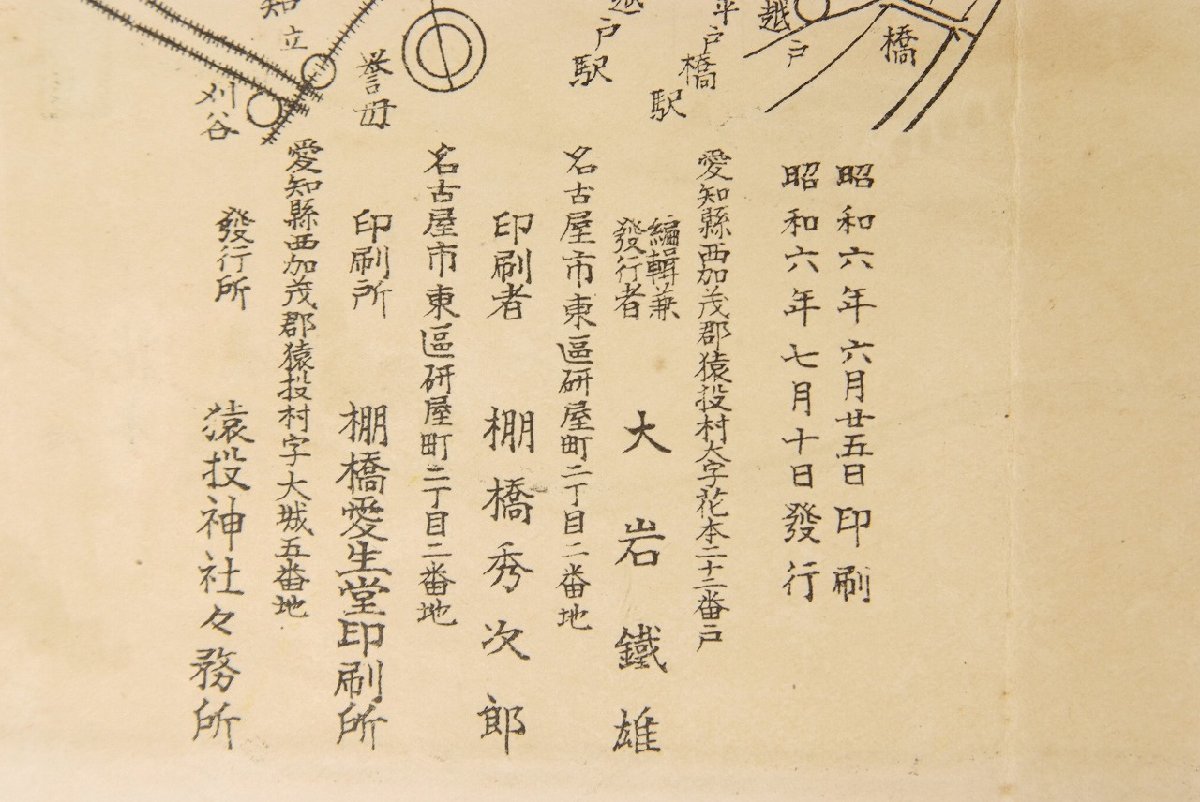 昭和六年六月廿五日印刷
昭和六年七月十日發行
愛知縣西加茂郡猿投村大字花本二十二番戸
編輯兼
發行者
大岩鐵雄
名古屋市東區研屋町二丁目二番地
印刷者 棚橋秀次郎
名古屋市東區研屋町二丁目二番地
印刷所 棚橋愛生堂印刷所
愛知縣西加茂郡猿投村字大城五番地
發行所 猿投神社々務所
橋
越戸
平戸橋駅
越戸駅
擧母
知立
刈谷